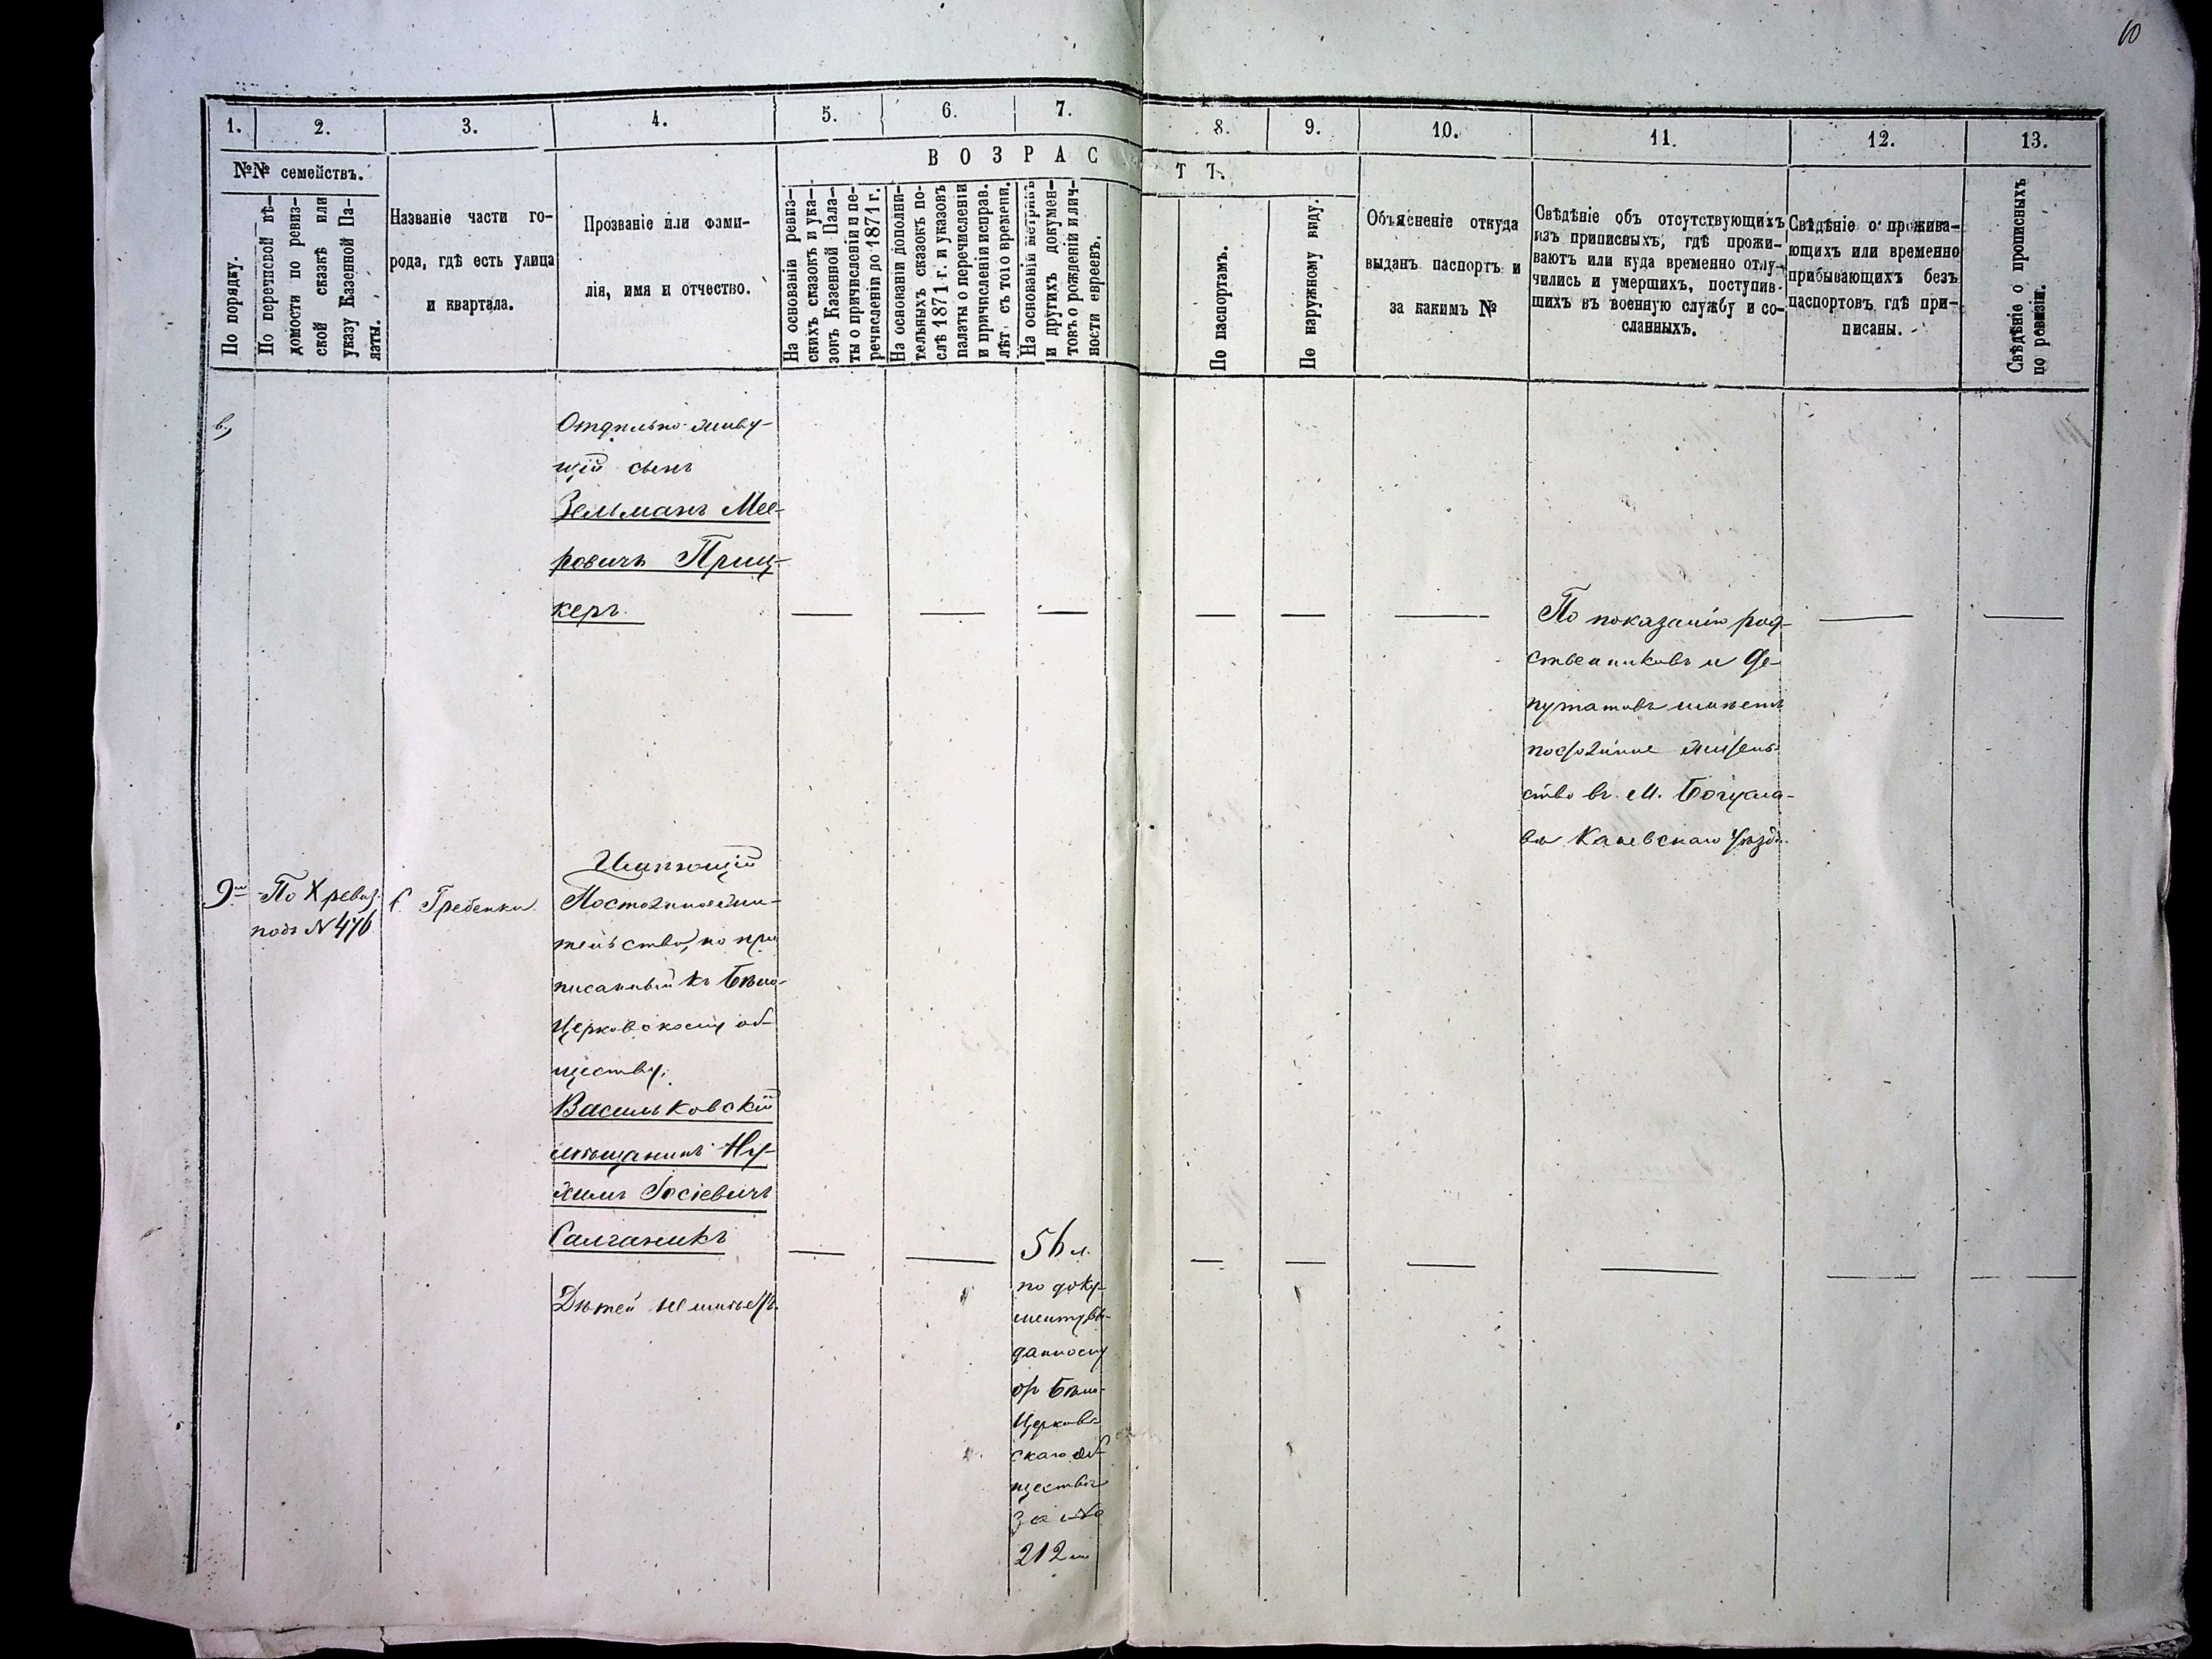 10
1.
2.
3.
4.
5.
6.
7.
8.
9.
10.
11.
12.
13.
№№ семействъ.
ВОЗРАС
ТЪ.
По порядку.
По перечневой вѣ-
домости по ревиз-
ской сказкѣ или
указу Казенной Па-
латы.
Названіе части го-
рода, гдѣ есть улица
и квартала.
Прозваніе или фами-
лія, имя и отчество.
На основаніи ревиз-
скихъ сказокъ и ука-
зокъ Казенной Пала-
ты о причисленіи и пе-
речисленіи до 1871 г.
На основаніи дополни-
тельныхъ сказокъ по-
слѣ 1871 г. и указовъ
палаты о перечисленіи
и причисленіи исправ.
лѣт. съ того времени.
На основаніи метрикъ
и другихъ докумен-
товъ о рожденіи и лич-
ности евреевъ.
По паспортамъ.
По наружному виду.
Объясненіе откуда
выданъ паспортъ и
за какимъ №
Свѣдѣніе объ отсутствующихъ
изъ приписныхъ, гдѣ прожи-
ваютъ или куда временно отлу-
чились и умершихъ, поступив-
шихъ въ военную службу и со-
сланныхъ.
Свѣдѣніе о прожива-
ющихъ или временно
прибывающихъ безъ
паспортовъ гдѣ при-
писаны.
Свѣдѣніе о прописныхъ
по ревизіи.
в.,
Отдѣльно живу-
щій сынъ
Зельманъ Мее-
ровичъ Приц-
керъ
По показанію род-
ственниковъ и де-
путатовъ имѣетъ
постоянное житель-
ство въ м. Богусла-
вѣ Каневскаго уѣзда
9й
По X ревиз.
подъ №476
с. Гребенки
Имѣющій
Постоянное жи-
тельство, но при
писанный къ Бѣло-
Церковскому об-
ществу,
Васильковскій
мѣщанинъ Ну-
химъ Іосіевичъ
Салганикъ
56 л.
по доку-
менту вы-
данному
отъ Бѣло-
Церков-
скаго об-
щества
за №
212м
Дѣтей не имѣетъ.